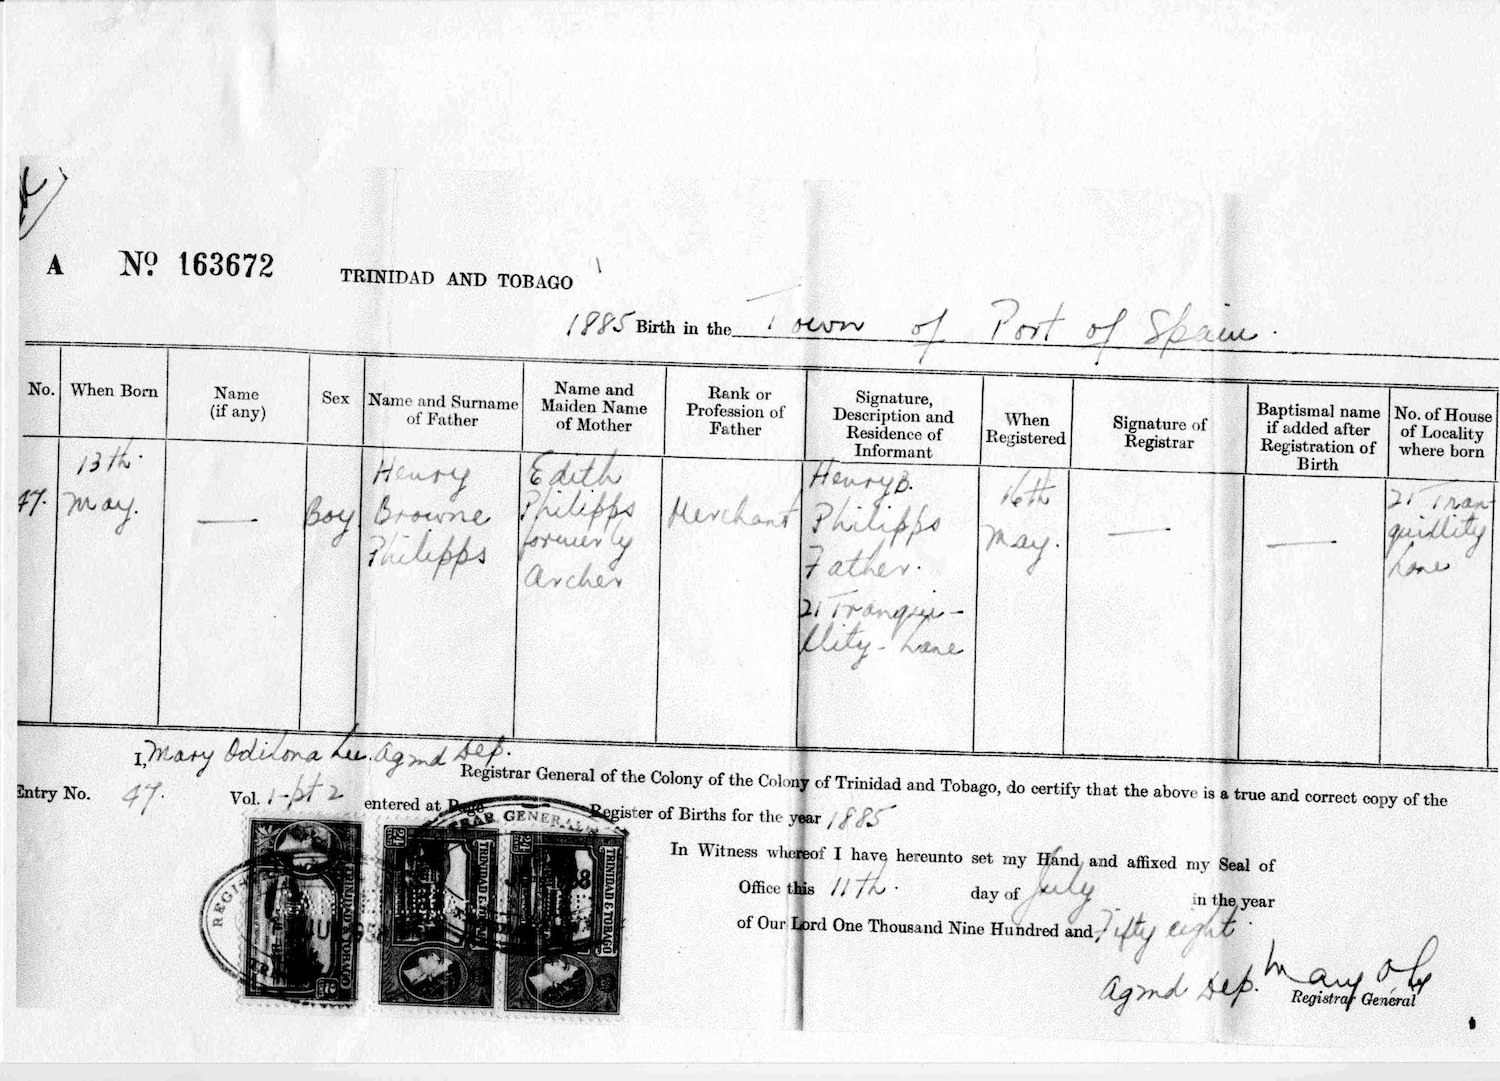 A No 163672 TRINIDAD AND TOBAGO
1885 Birth in the Town of Port of Spain.
No.
When Born
Name
(if any)
Sex
Name and Surname
of Father
Name and
Maiden Name
of Mother
Rank or
Profession of
Father
Signature,
Description and
Residence of
Informant
When
Registered
Signature of
Registrar
Baptismal name
if added after
Registration of
Birth
No. of House
of Locality
where born
47.
13th.
May.
—
Boy
Henry
Browne
Philipps
Edith
Philipps
formerly
Archer
Merchant
Henry B.
Philipps
Father.
21 Tranqui-
llity - Lane
16th
May.
—
—
21 Tran-
quillity
Lane
I, Mary Odilona Lee Agmd Dep.
Registrar General of the Colony of the Colony of Trinidad and Tobago, do certify that the above is a true and correct copy of the
Entry No. 47. Vol. 1-pt 2 entered at Page Register of Births for the year 1885
In Witness whereof I have hereunto set my Hand and affixed my Seal of
Office this 11th. day of July in the year
of Our Lord One Thousand Nine Hundred and Fifty eight.
Agmd Dep. Mary O Lee
Registrar General
REGISTRAR GENERAL
TRINIDAD & TOBAGO
TRINIDAD & TOBAGO
TRINIDAD & TOBAGO
24
24